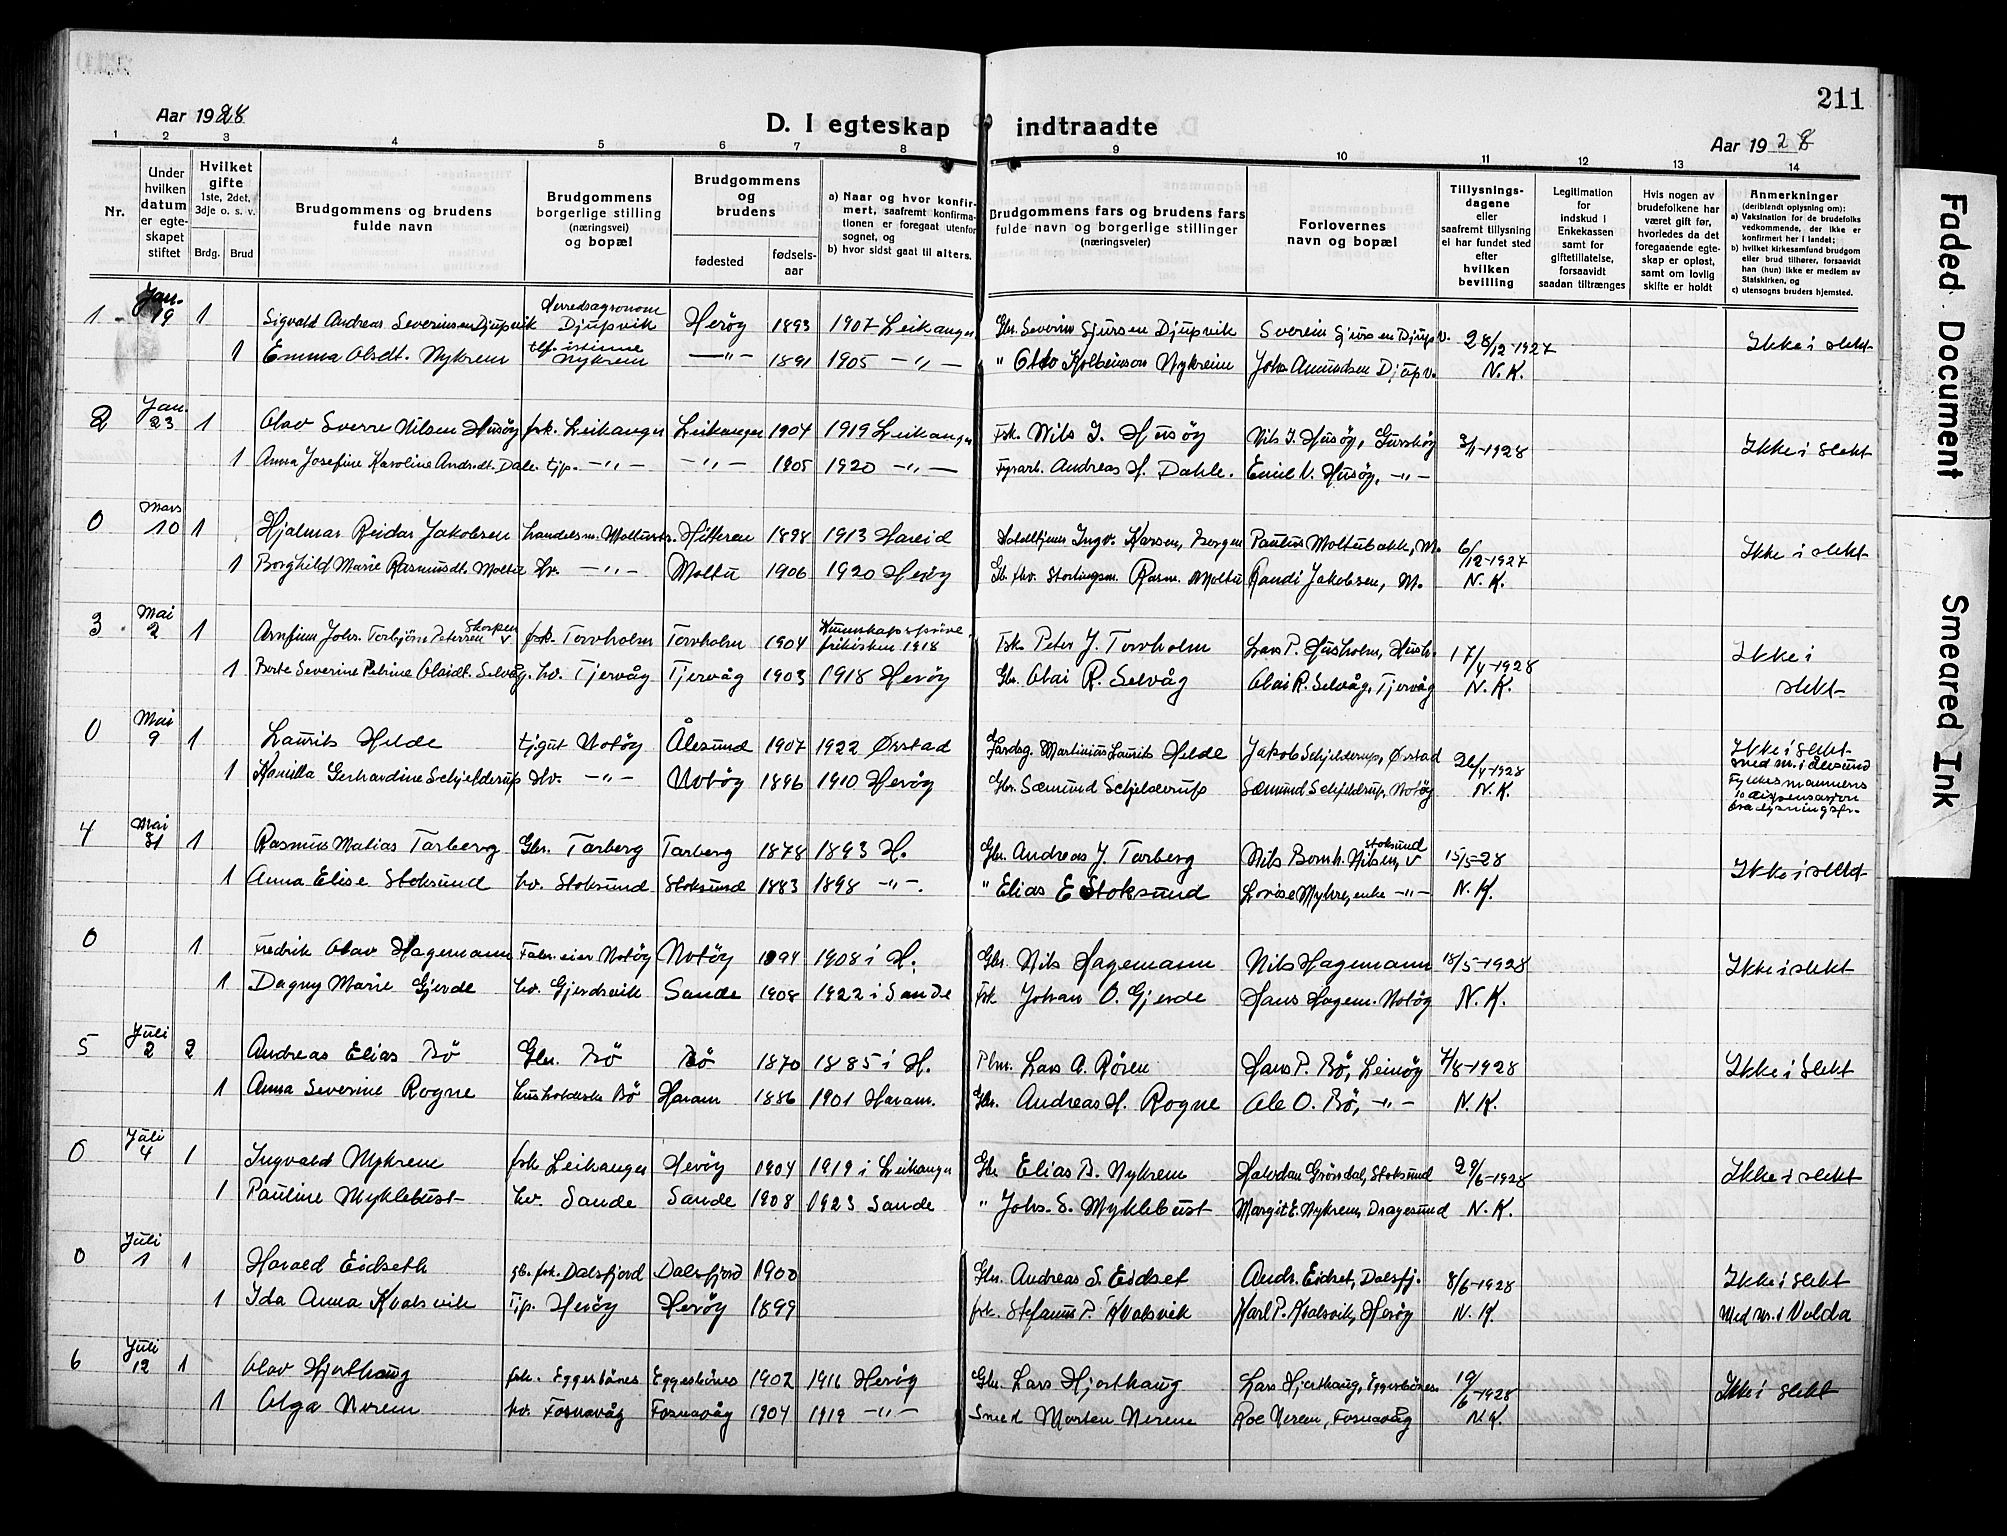 211
Aar 1928
D. I egteskap indtraadte
Aar 1928
1 2 3 4 5 6 7 8 9 10 11 12 13 14
Nr.
Under hvilken datum er egteskapet stiftet
Hvilket gifte 1ste, 2det, 3dje o. s. v.
Brdg. Brud
Brudgommens og brudens fulde navn
Brudgommens borgerlige stilling (næringsvei) og bopæl
Brudgommens og brudens
fødested
fødselsaar
a) Naar og hvor konfirmert, saafremt konfirmationen er foregaat utenfor sognet, og
b) hvor sidst gaat til alters.
Brudgommens fars og brudens fars fulde navn og borgerlige stillinger (næringsveier)
Forlovernes navn og bopæl
Tillysningsdagene eller saafremt tillysning ei har fundet sted efter hvilken bevilling
Legitimation for indskud i Enkekassen samt for giftetillatelse, forsaavidt saadan tiltrænges
Hvis nogen av brudefolkene har været gift før, hvorledes da det foregaaende egteskap er opløst, samt om lovlig skifte er holdt
Anmerkninger (deriblandt oplysning om):
a) Vaksination for de brudefolks vedkommende, der ikke er konfirmert her i landet;
b) hvilket kirkesamfund brudgom eller brud tilhører, forsaavidt han (hun) ikke er medlem av Statskirken, og
c) utensogns bruders hjemsted.
1 Jan. 19 1 Sigvald Andreas Severinsen Djupvik Herredsagronom Djupvik Herøy 1893 1907 Leikanger Gbr. Severin Sjursen Djupvik Severin Sjursen Djupv. 28/12-1927 Ikke i slekt
1 Emma Olsdt. Nykrem Nykrem -"- 1891 1905 -"- " Otto Kolbeinson Nykreim Johs Amundsen Djupv. N.K.
2 Jan. 23 1 Olav Sverre Nilsen Husøy fsk. Leikanger Leikanger 1904 1919 Leikanger Fsk. Nils J. Husøy Nils J. Husøy, Gurskøy 3/1-1928 Ikke i slekt
1 Anna Josefine Karoline Andrsdt. Dale tjp. -"- -"- 1905 1920 -"- Fyrarb. Andreas H. Dahle. Emil N. Husøy, -"-
0 Mars 10 1 Hjalmar Reidar Jakobsen handelsm. Moltustr. Hitteren 1898 1913 Hareid Ingv. Karsen, Bergen Paulus Moltubakk, M. 6/12-1927 Ikke i slekt
1 Borghild Marie Rasmusdt. Moltu Hv. -"- Moltu 1906 1920 Herøy Gb. fhv. Stortingsm. Rasm. Moltu Randi Jakobsen, M. N.K.
3 Mai 2 1 Arnfinn Johs. Torbjørn Petersen Skorpen fsk. Torvholm Torvholm 1904 Kunnskapsprøve frikirken 1918 Fsk. Peter J. Torvholm Lars P. Husholm, Hush. 17/4-1928 Ikke i
1 Berte Severine Petrine Olaidt. Selvåg. hv. Tjervåg Tjervåg 1903 1918 Herøy Gbr. Olai R. Selvåg Olai R. Selvåg, Tjervåg N.K. slekt
0 Mai 9 1 Laurits Helde tj.gut Notøy Ålesund 1907 1922 Ørstad Gardsg. Martinius Laurits Helde Jakob Schjelderup, Ørstad 26/4-1928 Ikke i slekt
1 Kamilla Gerhardine Schjelderup Hv. -"- Notøy 1896 1910 Herøy Gbr. Sæmund Schjelderup Sæmund Schjelderup, Notøy N.K. med nr. i Ålesund
Fylkesmannens dispensasjon
4 Mai 31 1 Rasmus Matias Tarberg Gbr. Tarberg Tarberg 1878 1893 H. Gbr. Andreas J. Tarberg Nils Bernh. Nilsen, Stoksund 15/5-28 Ikke i slekt
1 Anna Elise Stoksund hv. Stoksund Stoksund 1883 1898 -"-. " Elias E Stoksund Lovise Myhre, enke -"- N.K.
0 1 Fredrik Olav Hagemann Fabr.eier Notøy Notøy 1894 1908 i H. Gbr. Nils Hagemann Nils Hagemann 18/5-1928 Ikke i slekt
1 Dagny Marie Gjerde hv. Gjerdsvik Sande 1908 1922 i Sande Fsk Johan O. Gjerde Hans Hagem. Notøy N.K.
5 Juli 2 2 Andreas Elias Bø Gbr. Bø Bø 1870 1885 i H. Plm. Lars A. Røren Hans P. Bø, Leinøy 7/8-1928 Ikke i slekt
1 Anna Severine Rogne husholderske Bø Haram 1886 1901 Haram. Gbr. Andreas H. Rogne Ole O. Bø, -"- N.K.
0 Juli 4 1 Ingvald Nykrem fsk Leikanger Herøy 1904 1919 i Leikanger Gbr Elias B. Nykrem Halvdan Grønsdal, Stoksund 29/6-1928 Ikke i slekt
1 Pauline Myklebust hv. Sande Sande 1908 1923 Sande " Johs. S. Myklebust Margit E. Nykrem, Dragesund N.K.
0 Juli 1 1 Harald Eidseth gb. fsk. Dalsfjord Dalsfjord 1900 Gbr. Andreas S. Eidset Andr. Eidset, Dalsfj. 8/6-1928 Ikke i slekt
1 Ida Anna Kvalsvik Tjp. Herøy Herøy 1899 fsk. Stefanus P. Kvalsvik Karl P. Kvalsvik, Herøy N.K. Med nr. i Volda
6 Juli 12 1 Olav Hjorthaug fsk. Eggesbønes Eggesbønes 1902 1916 Herøy Gbr. Lars Hjorthaug Lars Hjorthaug, Eggesbønes. 19/6-1928 Ikke i slekt
1 Olga Nerem hv. Fosnavåg Fosnavåg 1904 1919 -"- Smed Morten Nerem Roe Nerem, Fosnavåg N.K.
Faded Document
Smeared Ink